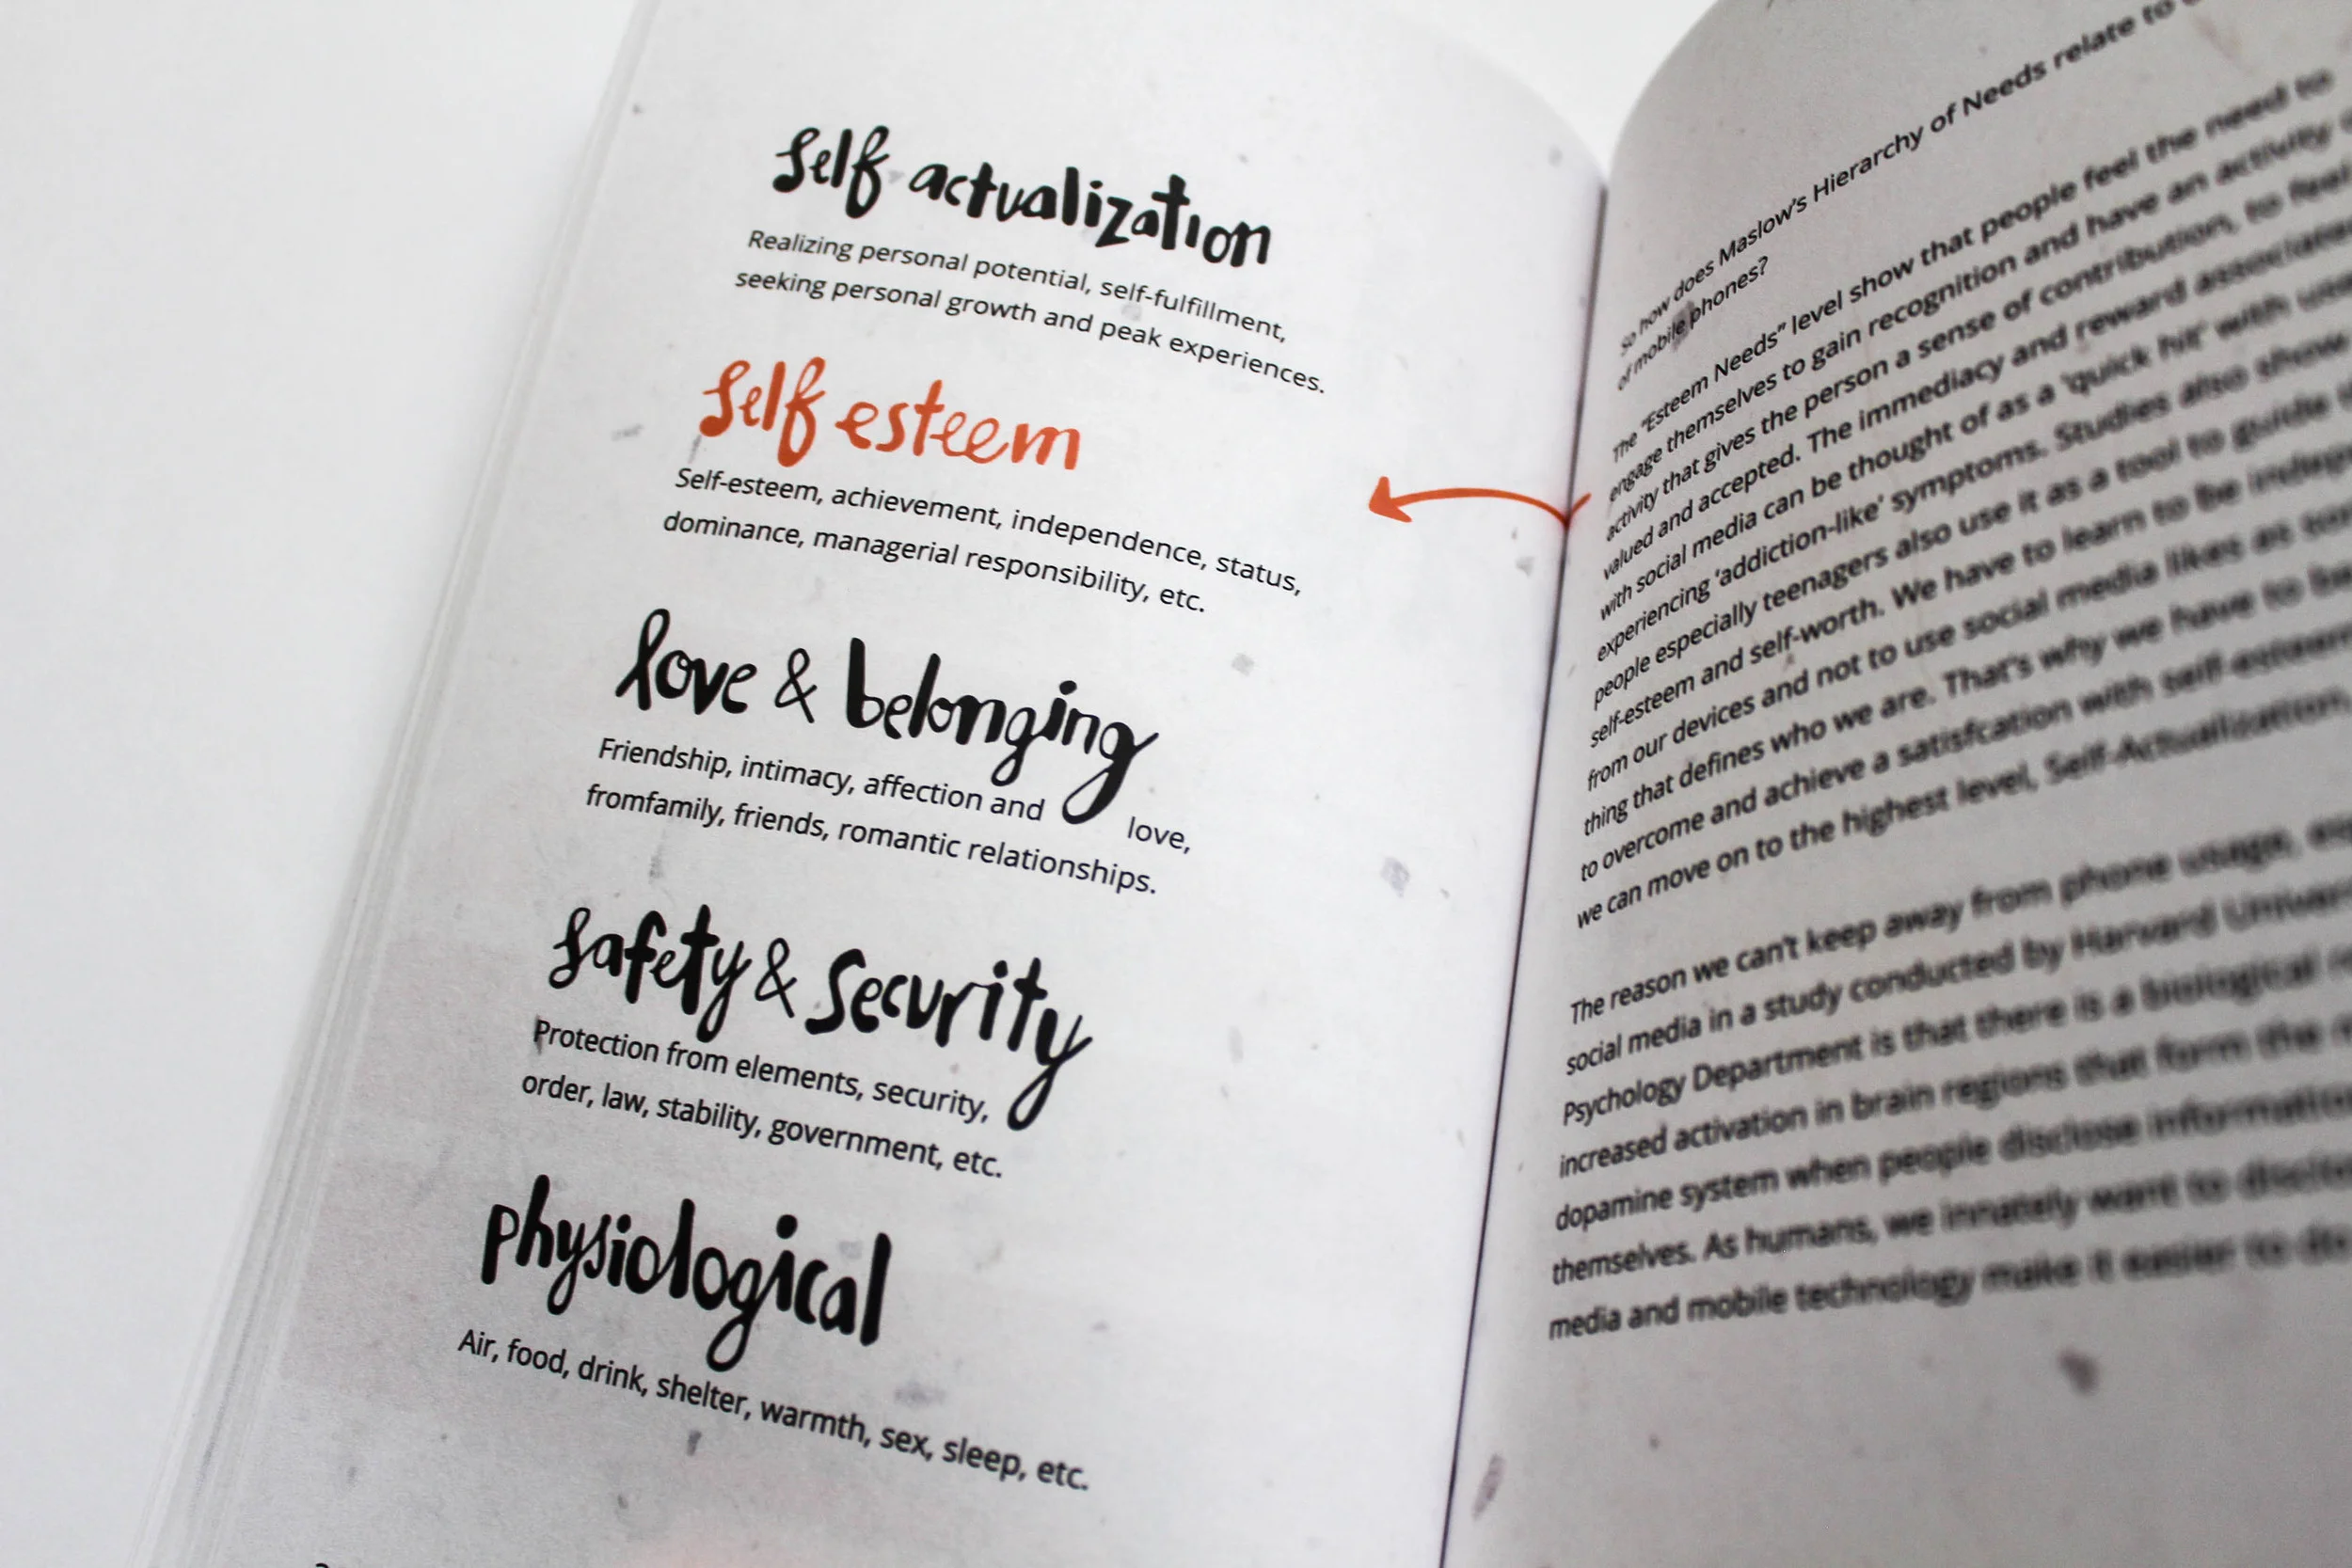 Self actualization
Realizing personal potential, self-fulfillment,
seeking personal growth and peak experiences.
Self esteem
Self-esteem, achievement, independence, status,
dominance, managerial responsibility, etc.
love & belonging
Friendship, intimacy, affection and love,
fromfamily, friends, romantic relationships.
Safety & Security
Protection from elements, security,
order, law, stability, government, etc.
physiological
Air, food, drink, shelter, warmth, sex, sleep, etc.
So how does Maslow's Hierarchy of Needs relate to
of mobile phones?
The "Esteem Needs" level show that people feel the need to
engage themselves to gain recognition and have an activity
activity that gives the person a sense of contribution, to feel
valued and accepted. The immediacy and reward
with social media can be thought of as a 'quick hit' with
experiencing 'addiction-like' symptoms. Studies also show
people especially teenagers also use it as a tool to guide
self-esteem and self-worth. We have to learn to be
from our devices and not to use social media likes as
thing that defines who we are. That's why we have to
to overcome and achieve a satisfcation with self-esteem
we can move on to the highest level, Self-Actualization,
The reason we can't keep away from phone usage,
social media in a study conducted by Harvard
Psychology Department is that there is a biological
increased activation in brain regions that form the
dopamine system when people disclose information
themselves. As humans, we innately want to
media and mobile technology make it easier to